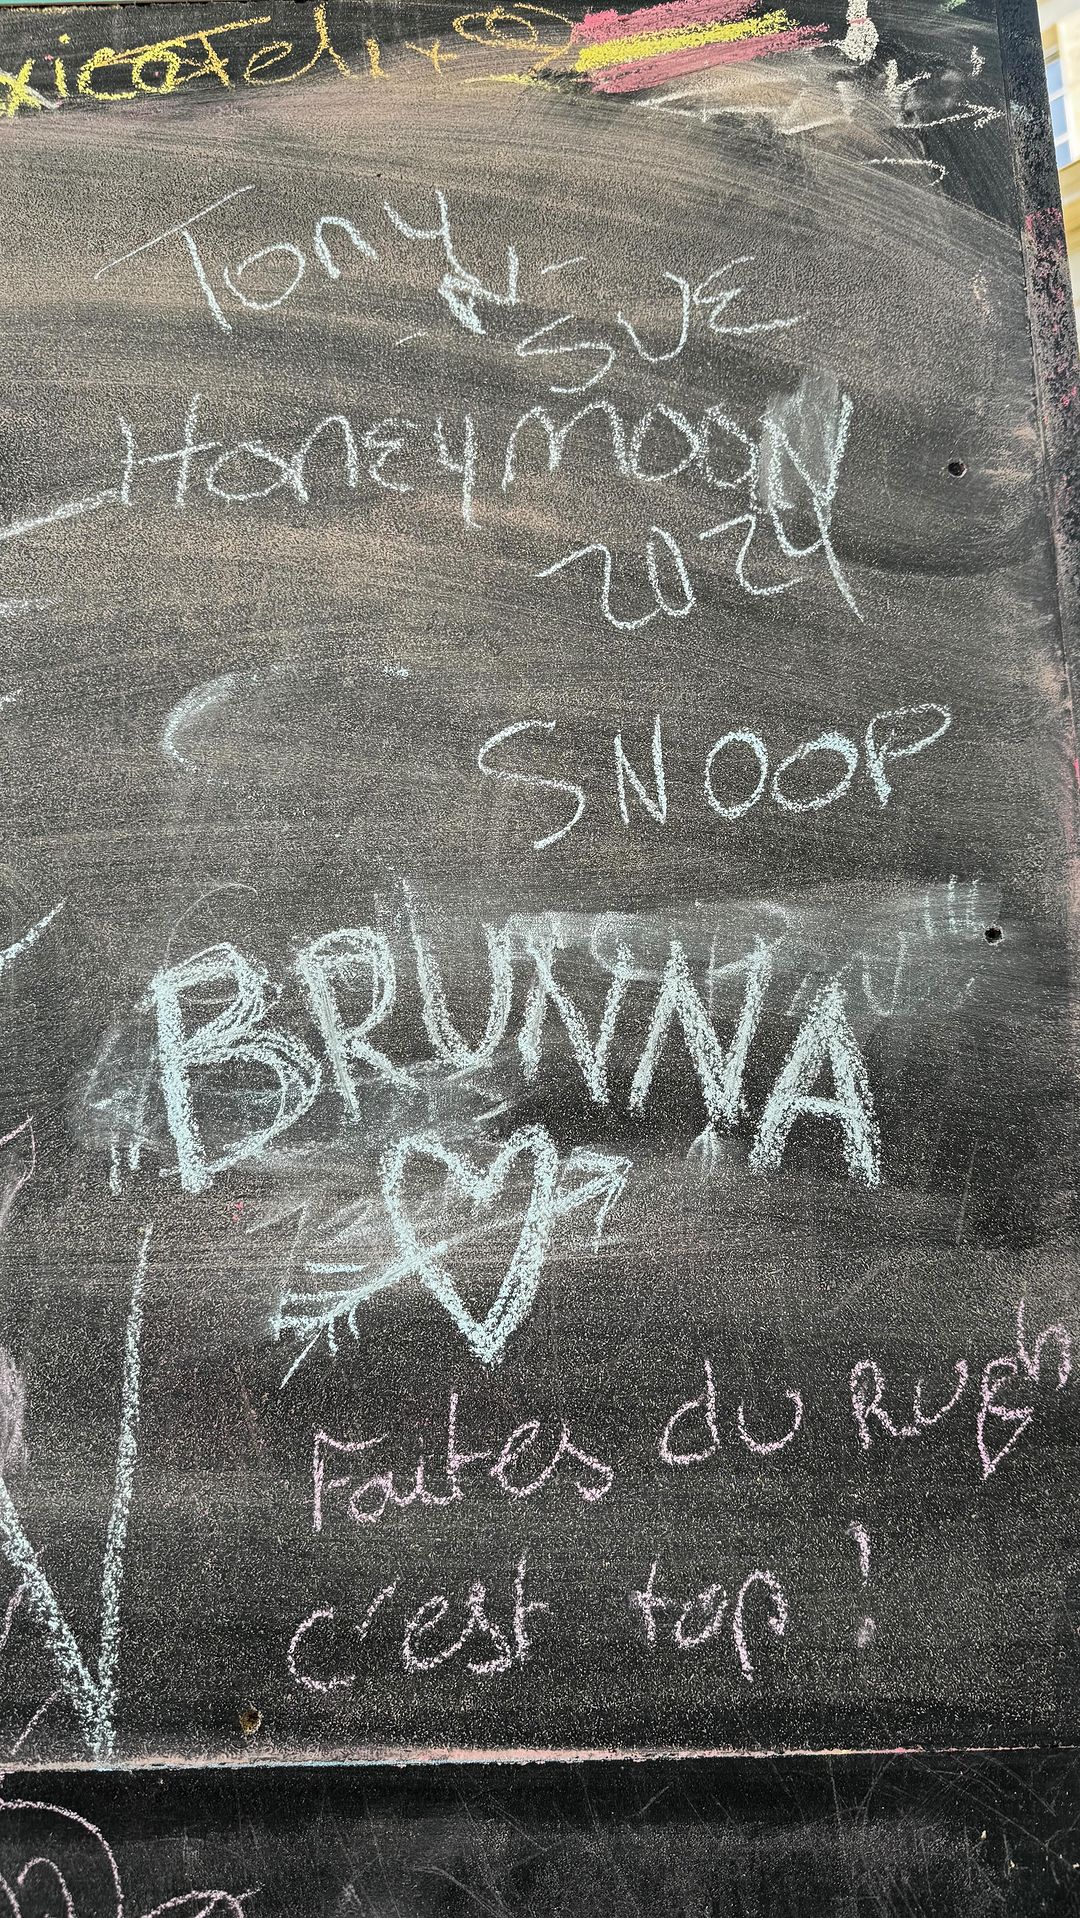 Tony
N
SUE
Honeymoon
2024
SNOOP
BRUNNA
Faites du Rugb
c'est top!